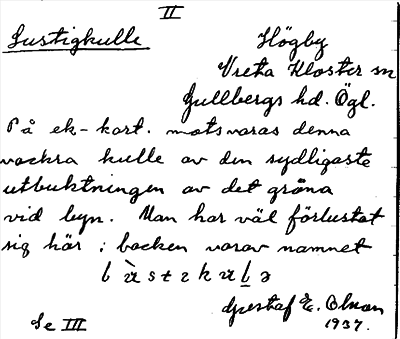 II
Lustigkulle
Högby
Vreta Kloster sn
Gullbergs hd. Ögl.
På ek-kart. motsvaras denna
vackra kulle av den sydligaste
utbuktningen av det gröna
vid byn. Man har väl förlustat
sig här i backen varav namnet
Gustaf E. Olson
1937.
Se III